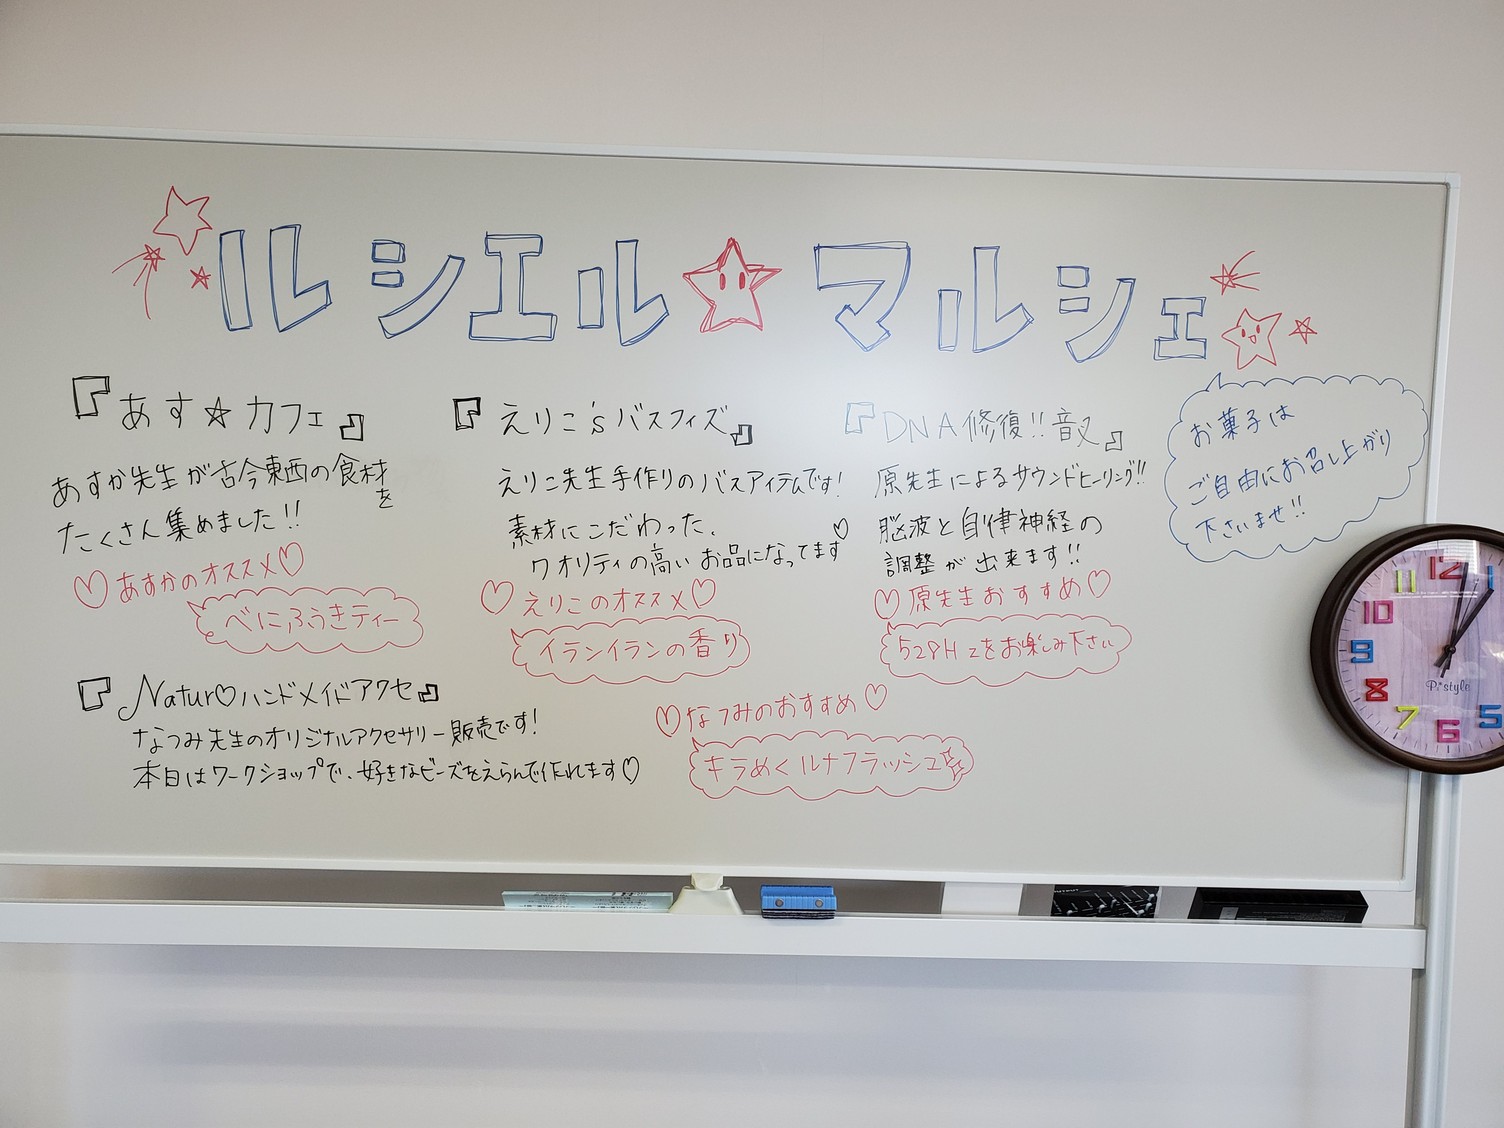 ルシエル☆マルシェ
『あす☆カフェ』
あすか先生が古今東西の食材を
たくさん集めました!!
♡あすかのオススメ♡
べにふうきティー
『えりこ'sバスフィズ』
えりこ先生手作りのバスアイテムです!
素材にこだわった、
クオリティの高いお品になってます♡
♡えりこのオススメ♡
イランイランの香り
『DNA修復!!音叉』
原先生によるサウンドヒーリング!!
脳波と自律神経の
調整が出来ます!!
♡原先生おすすめ♡
528Hzをお楽しみ下さい
お菓子は
ご自由にお召し上がり
下さいませ!!
『Natur♡ハンドメイドアクセ』
なつみ先生のオリジナルアクセサリー販売です!
本日はワークショップで、好きなビーズをえらんで作れます♡
♡なつみのおすすめ♡
キラめくルナフラッシュ
12
1
11
10
9
8
7
6
5
P.*style